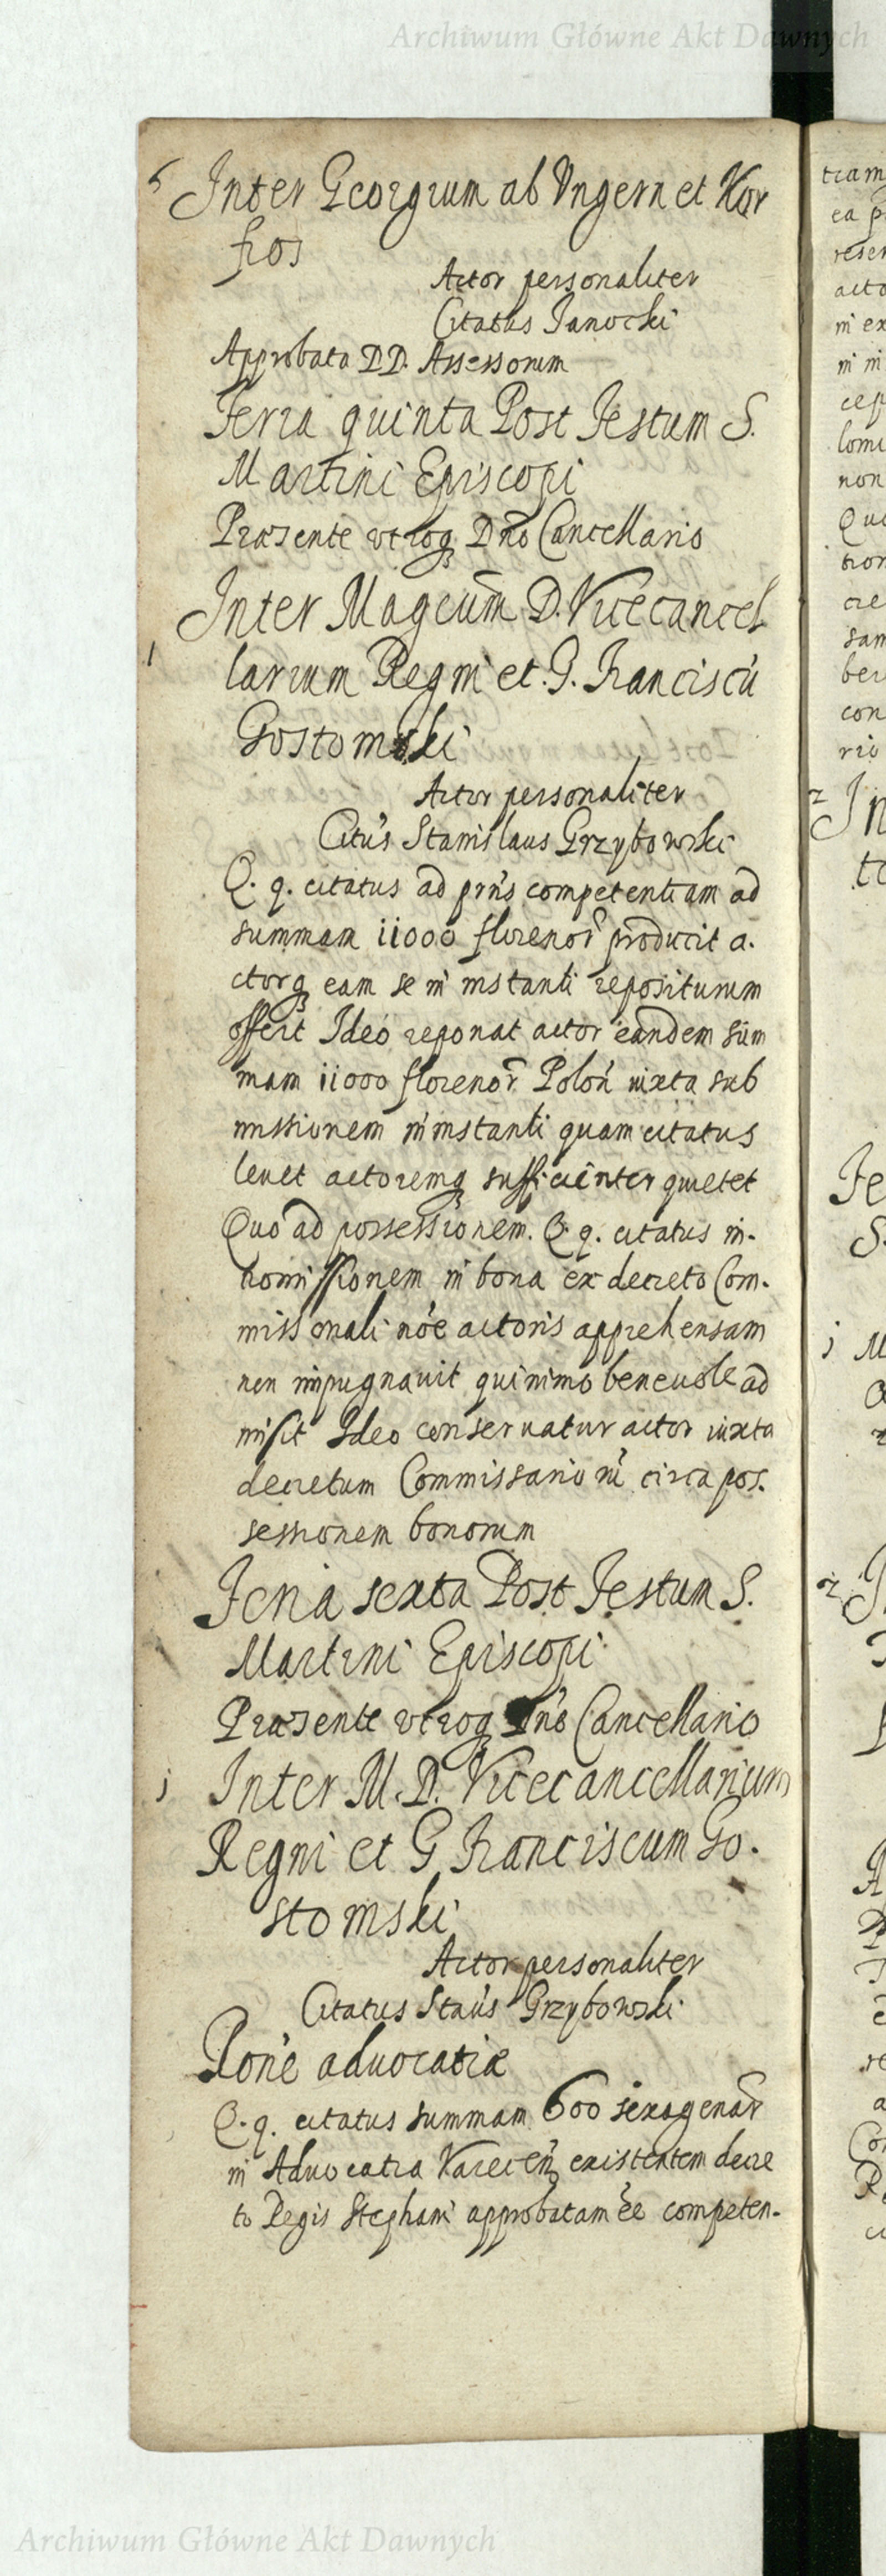 Archiwum Główne Akt Dawnych
5 Inter Georgium ab Ungern et Kor
fios
Actor personaliter
Citatus Janocki
Approbata DD. Assessorum
Feria quinta Post Festum S.
Martini Episcopi
Præsente vtroq Dno Cancellario
1 Inter Magcum D. Vicecancel
larium Regni et G. Franciscu
Gostomski
Actor personaliter
Citus Stanislaus Grzybowski
Q. q. citatus ad prns competentiam ad
summam 11000 florenor producit a.
ctorq eam se in instanti repositurum
offert Ideo reponat actor eandem sum
mam 11000 florenor Polon iuxta sub
missionem in instanti quam citatus
leuet actoremq sufficienter quietet
Quo ad possessionem. Q. q. citatus in.
tromissionem in bona ex decreto Com.
missionali noe actoris apprehensam
non impugnauit quinimo beneuole ad
misit Ideo conseruatur actor iuxta
decretum Commissarioru circa pos.
sessionem bonorum
Feria sexta Post Festum S.
Martini Episcopi
Præsente vtroq Dno Cancellario
j Inter M. D. Vicecancellarium
Regni et G Franciscum Go.
stomski
Actor personaliter
Citatus Staus Grzybowski
Rone aduocatiæ
Q. q. citatus summam 600 sexagenar
in Aduocatia Varecen existentem decre
to Regis Stephani approbatam ee competen.
Archiwum Główne Akt Dawnych